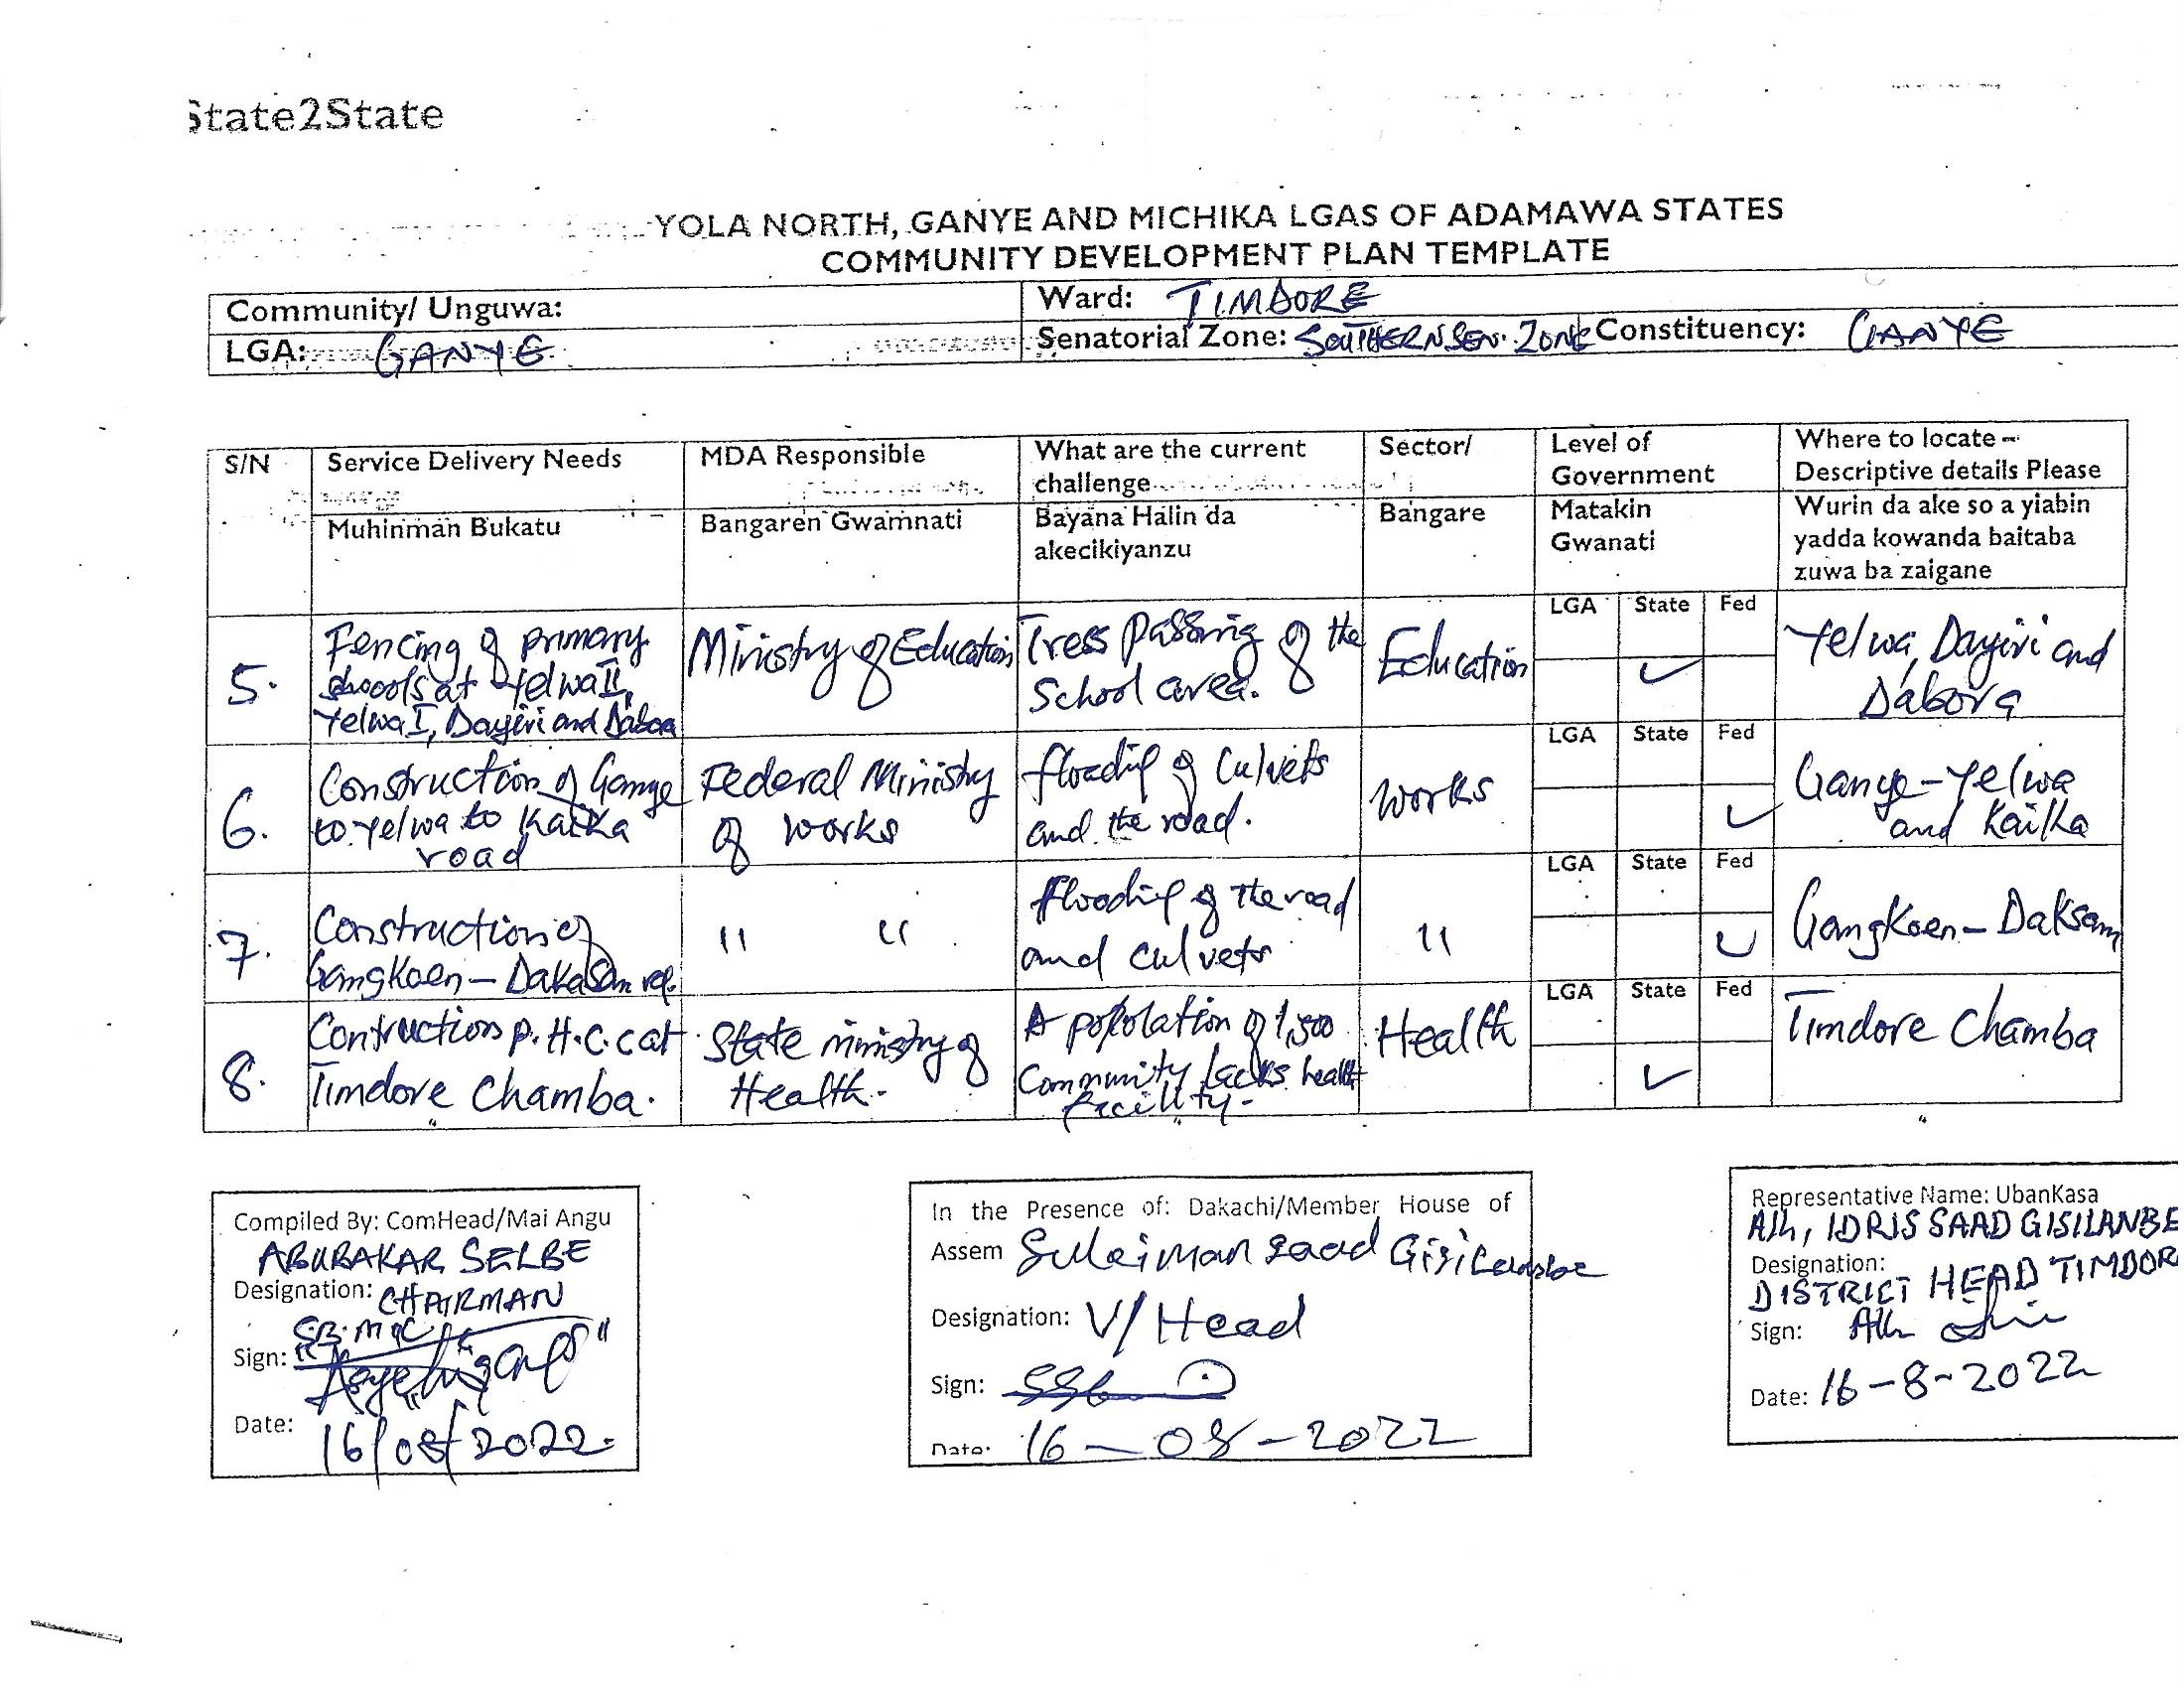 State2State
YOLA NORTH, GANYE AND MICHIKA LGAS OF ADAMAWA STATES
COMMUNITY DEVELOPMENT PLAN TEMPLATE
Community/ Unguwa:
Ward: TIMDORE
LGA: GANYE
Senatorial Zone: SOUTHERN SEN. ZONE Constituency: GANYE
S/N
Service Delivery Needs
MDA Responsible
What are the current
challenge
Sector/
Level of
Government
Where to locate –
Descriptive details Please
Muhinman Bukatu
Bangaren Gwamnati
Bayana Halin da
akecikiyanzu
Bangare
Matakin
Gwanati
Wurin da ake so a yiabin
yadda kowanda baitaba
zuwa ba zaigane
5.
Fencing of primary
shoools at Yelwa II,
Yelwa I, Dayiri and Dabora
Ministry of Education
Tress passing of the
School area.
Education
LGA State Fed
✓
Yelwa, Dayiri and
Dabora
6.
Construction of Ganye
to Yelwa to Kaika
road
Federal Ministry
of works
flooding of Culvets
and the road.
works
LGA State Fed
✓
Ganye-Yelwa
and Kaika
7.
Construction of
GangKoen – Dakasam
" "
flooding of the road
and culvets
"
LGA State Fed
✓
GangKoen – Daksam
8.
Contructions P.H.C.C at
Timdore Chamba.
State ministry of
Health.
A popolation of 1,500
Community lacks health
facility.
Health
LGA State Fed
✓
Timdore Chamba
Compiled By: ComHead/Mai Angu
ABUBAKAR SELBE
Designation: CHAIRMAN
S.B.M.C
Sign:
Date: 16/08/2022.
In the Presence of: Dakachi/Member House of
Assem Suleiman Saad
Designation: V/Head
Sign:
Date: 16-08-2022
Representative Name: UbanKasa
Alh, IDRIS SAAD GISILANBE
Designation:
DISTRICT HEAD TIMDOR
Sign: Alh
Date: 16-8-2022